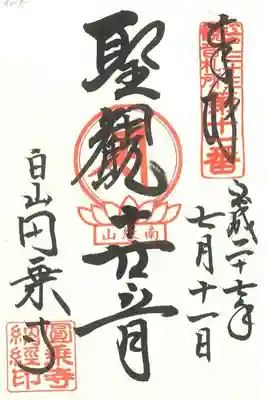 奉拝
第十一番
平成二十七年
七月十一日
聖觀世音
南縁山
白山円乗寺
圓乗寺
納經印